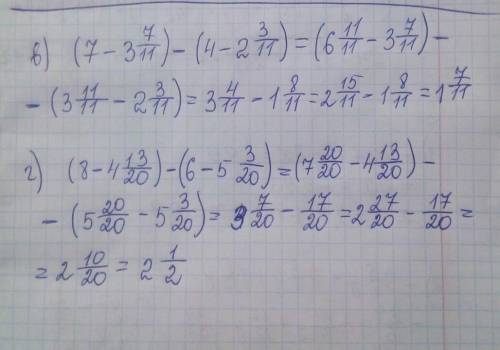 в) (7 - 3 7/11) - (4 - 2 3/11) = (6 11/11 - 3 7/11) -
- (3 11/11 - 2 3/11) = 3 4/11 - 1 8/11 = 2 15/11 - 1 8/11 = 1 7/11
г) (8 - 4 13/20) - (6 - 5 3/20) = (7 20/20 - 4 13/20) -
- (5 20/20 - 5 3/20) = 3 7/20 - 17/20 = 2 27/20 - 17/20 =
= 2 10/20 = 2 1/2